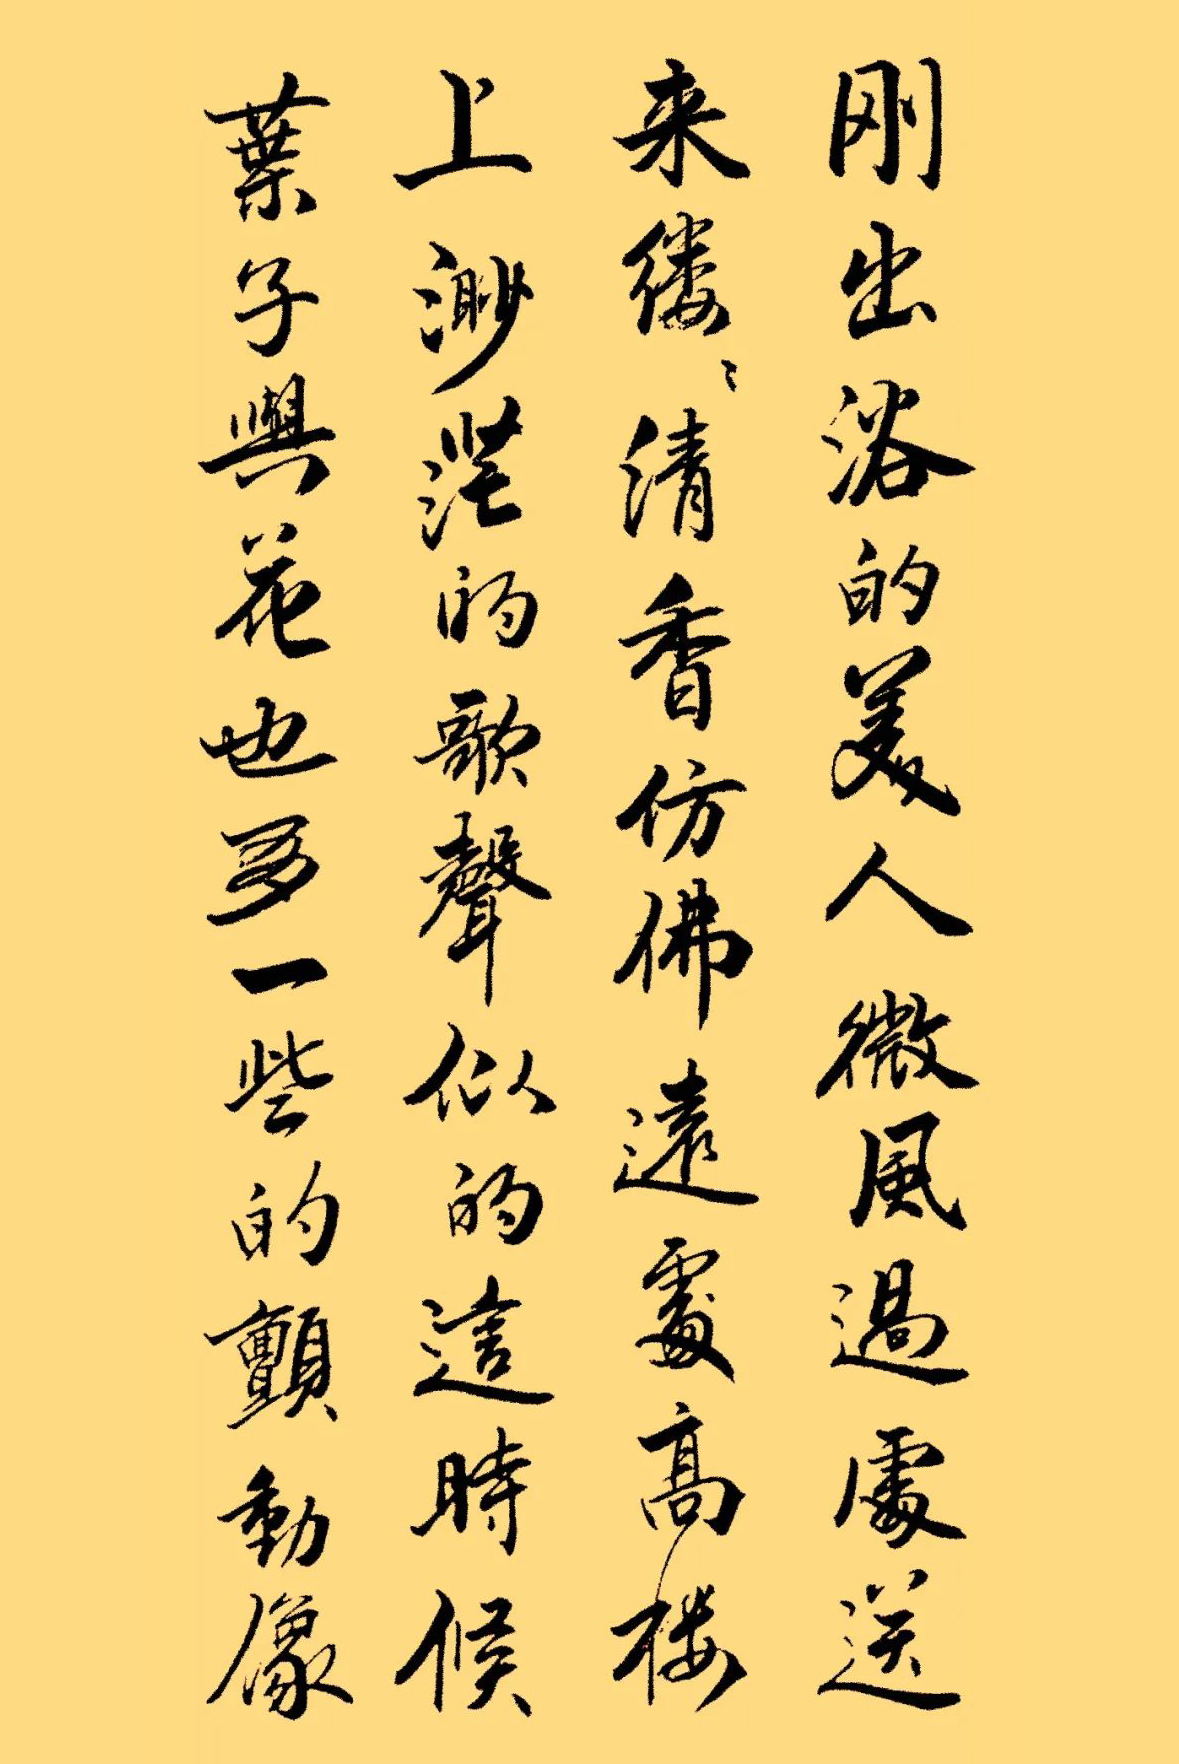 刚出浴的美人微風過處送
来缕〻清香仿佛遠處高楼
上渺茫的歌聲似的這時候
葉子與花也多一些的顫動像